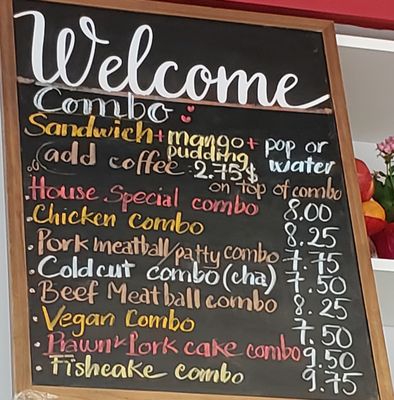 Welcome
Combo :
Sandwich + mango + pop or
pudding water
add coffee : 2.75$
on top of combo
. House Special combo 8.00
. Chicken combo 8.25
. Pork meatball/patty combo 7.75
. Cold cut combo (cha) 7.50
. Beef Meatball combo 8.25
. Vegan Combo 7.50
. Prawn & Pork cake combo 9.50
. Fishcake combo 9.75